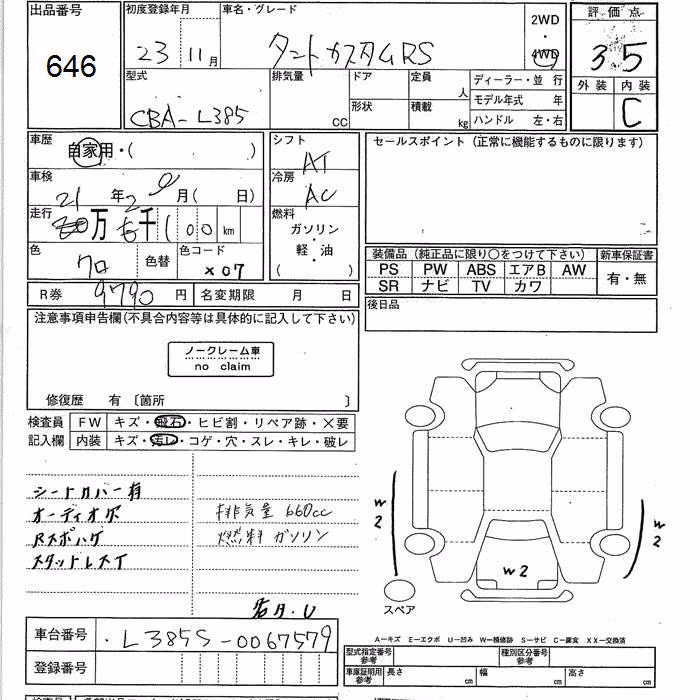 出品番号
646
初度登録年月
23 11 月
車名・グレード
タントカスタムRS
2WD
・
4WD
評価点
3.5
外装 内装
C
型式
CBA-L385
排気量
CC
ドア
形状
定員
人
積載
kg
ディーラー・並 行
モデル年式 年
ハンドル 左・右
車歴
自家用・( )
シフト
AT
セールスポイント（正常に機能するものに限ります）
車検
21 年 2 月( 日)
冷房
AC
走行
万 千 1 0 0 km
燃料
ガソリン
・
軽・油
( )
色
クロ
色替
色コード
X07
装備品（純正品に限り○をつけて下さい）
新車保証書
PS PW ABS エアB AW
SR ナビ TV カワ
有・無
R券 9790 円
名変期限 月 日
後日品
注意事項申告欄(不具合内容等は具体的に記入して下さい)
ノークレーム車
no claim
修復歴 有 〔箇所 〕
検査員
記入欄
FW キズ・飛石・ヒビ割・リペア跡・×要
内装 キズ・汚レ・コゲ・穴・スレ・キレ・破レ
シートカバー有
オーディオ欠
Rスポハゲ
スタッドレス
排気量 660cc
燃料 ガソリン
U
W2
W2
W2
スペア
車台番号 L385S-0067579
登録番号
A－キズ E－エクボ U－凹み W－補修跡 S－サビ C－腐食 XX－交換済
型式指定番号
参考
種別区分番号
参考
車庫証明用
参考
長さ cm
幅 cm
高さ cm